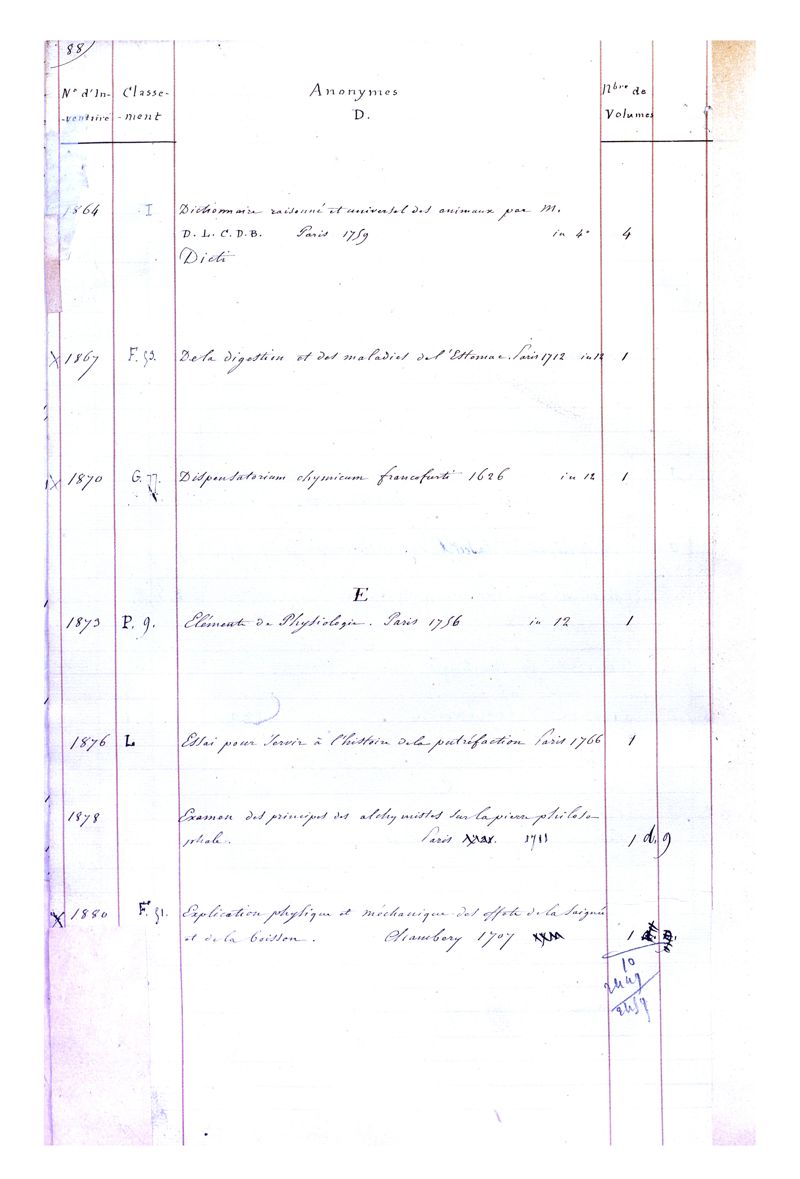 88
N° d'In- Classe- Anonymes Nbre de
-ventaire -ment D. Volumes
1864 I Dictionnaire raisonné et universel des animaux par M.
D. L. C. D. B. Paris 1759 in 4° 4
Dicti
X 1867 F. 53. De la digestion et des maladies de l'Estomac. Paris 1712 in 12 1
X 1870 G. 77. Dispensatorium chymicum francofurti 1626 in 12 1
E
1873 P. 9. Eléments de Physiologie. Paris 1756 in 12 1
1876 L Essai pour servir à l'histoire de la putréfaction Paris 1766 1
1878 Examen des principes des alchymistes sur la pierre philoso-
phale. Paris 1711 1 d. 9
X 1880 F. 51. Explication physique et méchanique des effets de la saignée
et de la boisson. Chambery 1707 1
10
2449
2459